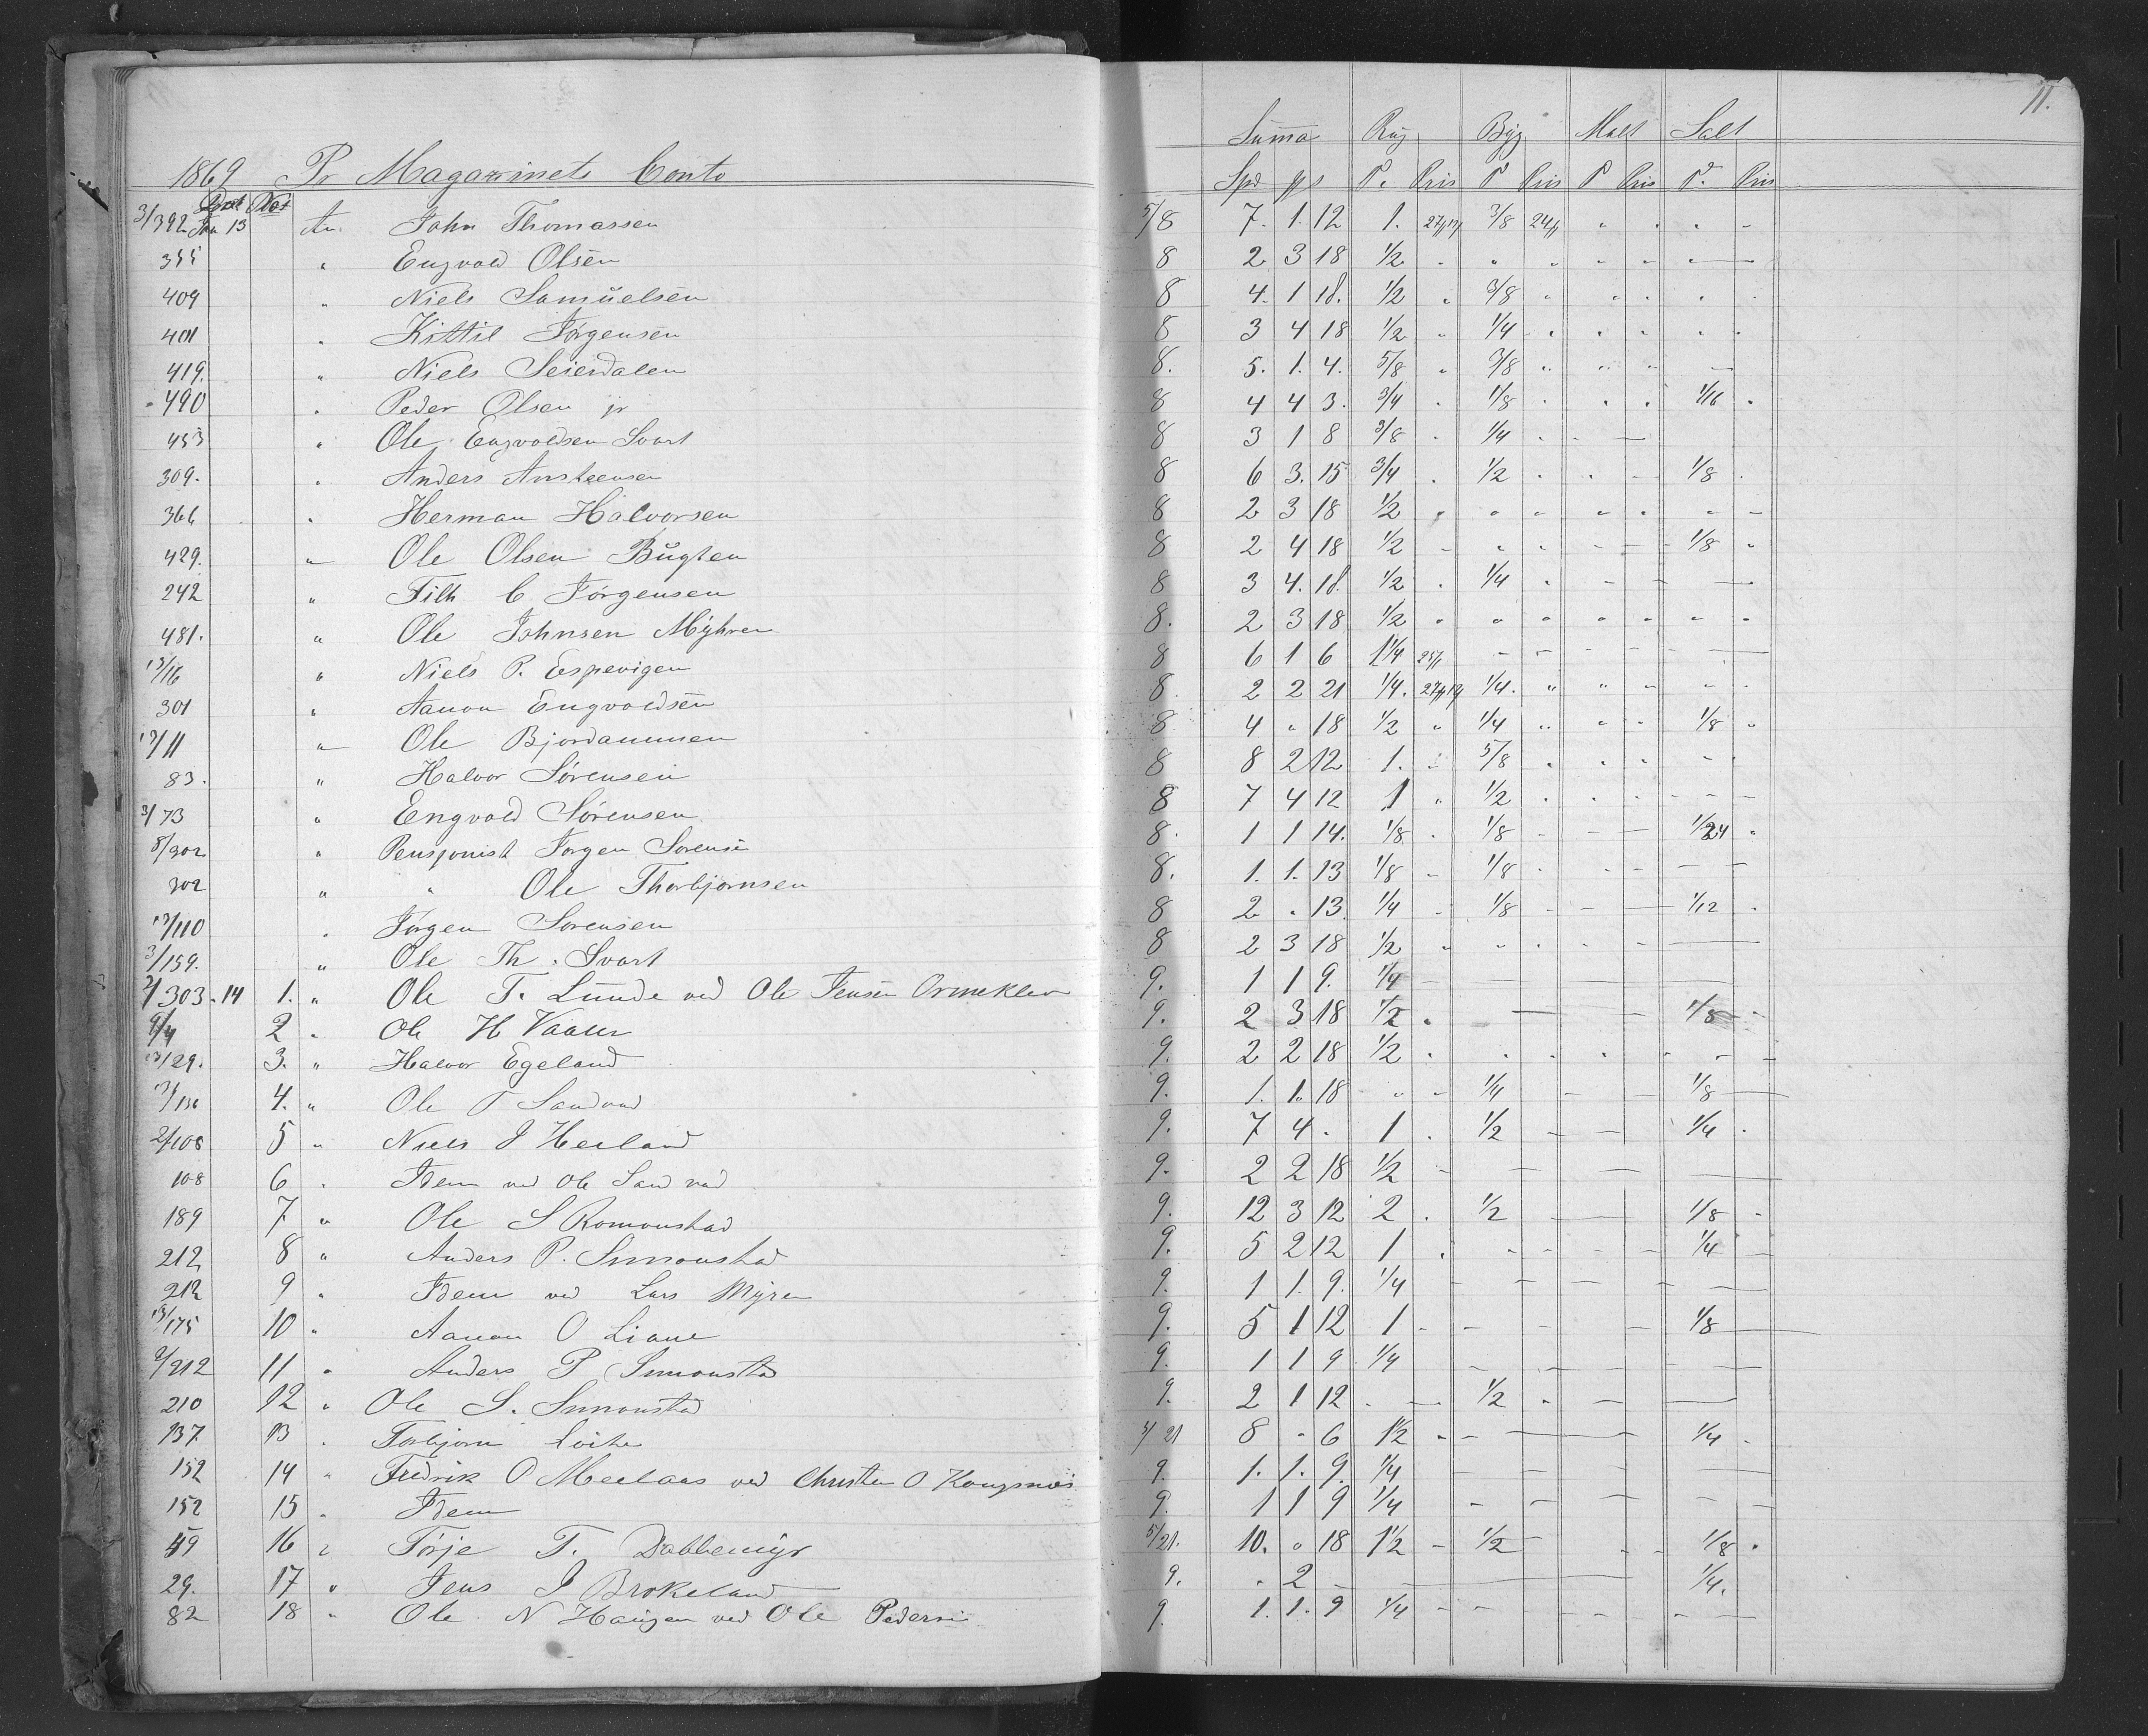 11.
1869 Pr Magazinets Conto Summa Rug Byg Malt Salt
Not Spd P. Pris P Pris P Pris P. Pris
3/392 Jan 13 An. John Thomassen 5/8 7. 1. 12 1. 3/8 24 " " " "
355 " Engvold Olsen 8 2 3 18 1/2 " " " " " "
409 " Niels Samuelsen 8 4. 1 18. 1/2 " 3/8 " " " "
401 " Kittil Jørgensen 8 3 4 18 1/2 " 1/4 " " " "
419. " Niels Seierdalen 8. 5. 1. 4. 5/8 " 3/8 " " "
490 " Peder Olsen jr 8 4 4 3. 3/4 " 1/8 " " " 1/16 "
453 " Ole Engvoldsen Svart 8 3 1 8 3/8 " 1/4 " "
309. " Anders Ansteensen 8 6 3. 15 3/4 " 1/2 " " " 1/8 "
366 " Herman Halvorsen 8 2 3 18 1/2 " " " " " "
429. " Ole Olsen Bugten 8 2 4 18 1/2 " " " " 1/8 "
242 " Filh C Jørgensen 8 3 4. 18. 1/2 " 1/4 "
481. " Ole Johnsen Myhren 8. 2 3 18 1/2 " " " " " "
13/16 " Niels P. Espevigen 8 6 1 6 1 1/4
301 " Aanon Engvoldsen 8. 2 2 21 1/4. 1/4. " " " " "
13/11 " Ole Bjordammen 8 4 " 18 1/2 " 1/4 " " " 1/8 "
83. " Halvor Sørensen 8 8 2 12 1. " 5/8 " " " " "
3/73 " Engvold Sørensen 8 7 4 12 1 " 1/2 " " "
8/302 " Pensjonist Jørgen Sorensen 8. 1 1 14. 1/8 " 1/8 1/24 "
302 " " Ole Thorbjørnsen 8. 1. 1. 13 1/8 1/8 "
13/110 " Jørgen Sorensen 8 2 " 13. 1/4 1/8 1/12 "
3/159. " Ole Th. Svart 8 2 3 18 1/2 " " " " "
2/303. 14 1. " Ole T. Lunde ved Ole Jensen Ormeklev 9. 1 1 9. 1/4
9/4 2 " Ole H Vaaer 9. 2 3 18 1/2 " 1/8
13/29. 3. " Halvor Egeland 9. 2 2 18 1/2 " " " " "
4. " Ole T Sandvad 9. 1. 1. 18 " " 1/4 1/8
2/108 5 " Niels J Heiland 9. 7 4 . 1 . 1/2 1/4 "
108 6 " Idem ved Ole Sandvad 9. 2 2 18 1/2
189 7 " Ole S Romonstad 9. 12 3 12 2 . 1/2 1/8
212 8 " Anders P. Simonstad 9. 5 2 12 1 . 1/4
212 9 " Idem ved Lars Myren 9. 1 1. 9. 1/4
13/175 10 " Aanon O Liane 9. 5 1 12 1 1/8
2/212 11 " Anders P Simonstad 9. 1 1 9 1/4
210 12 " Ole S. Simonstad 9. 2 1 12 . 1/2
137. 13 . Torbjørn 4/21 8 " 6 1 1/2 1/4
152 14 " Fredrik O Meelaas ved Christen O Kongsnæs 9. 1. 1. 9. 1/4
152 15 . Idem 9. 1 1 9 1/4
59 16 " Terje T. Dobbemyr 5/21. 10. " 18 1 1/2 1/2 1/8 .
29. 17 " Jens J Brokeland 9. . 2 1/4.
82 18 " Ole N Haugen ved Ole Pedersen 9. 1. 1. 9 1/4